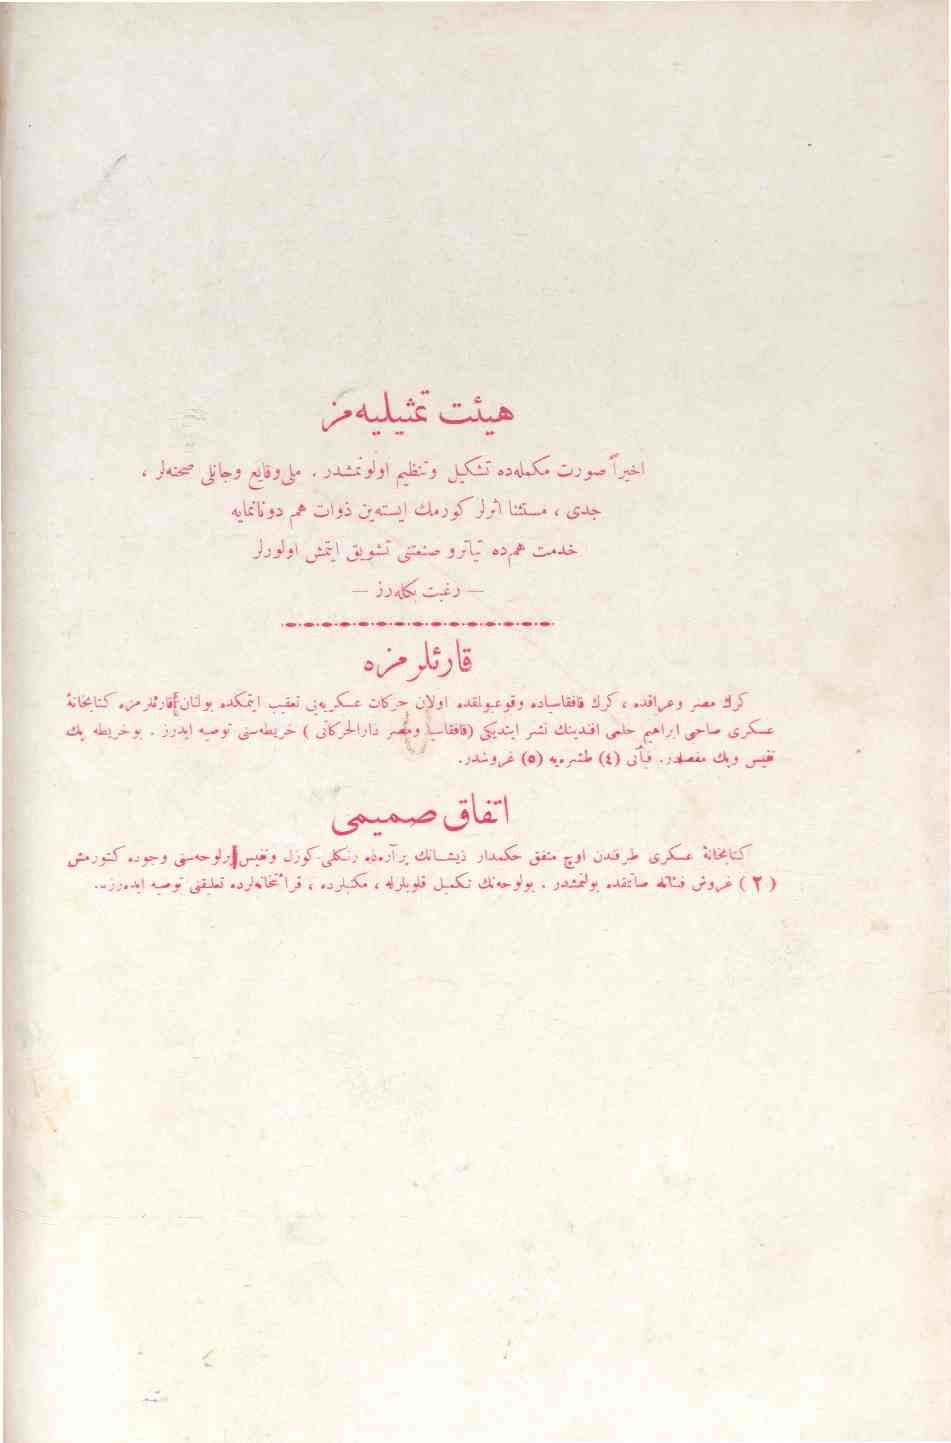 هیئت تمثیلیه‌مز
اخیراً صورت مکمله‌ده تشکیل وتنظیم اولونمشدر . ملی وقایع وجانلی صحنه‌لر ،
جدی ، مستثنا اثرلر کورمك ایسته‌ین ذوات هم دونانمایه
خدمت هم‌ده تیاترو صنعتنی تشویق ایتمش اولورلر
— رغبت بکله‌رز —
قارئلرمزه
كرك مصر وعراقده ، كرك قافقاسیاده وقوعبولمقده اولان حرکات عسکریه‌یی تعقیب ایتمکده بولنان قارئلرمزه کتابخانهٔ
عسکری صاحبی ابراهیم حلمی افندینك نشر ایتدیکی (قافقاسیا ومصر دارالحرکاتی ) خریطه‌سنی توصیه ایدرز . بوخریطه پك
نفیس وپك مفصلدر. فیأتی (٤) طشره‌یه (٥) غروشدر.
اتفاق صمیمی
کتابخانهٔ عسکری طرفندن اوچ متفق حکمدار ذیشانك برآره‌ده رنکلی کوزل ونفیس برلوحه‌سنی وجوده کتورمش
(٢) غروش فیئاتله صاتیلقده بولنمشدر . بولوحه‌نك تکمیل قلوبلرله ، مکتبلرده ، قرائتخانه‌لرده تعلیقنی توصیه ایده‌رز..